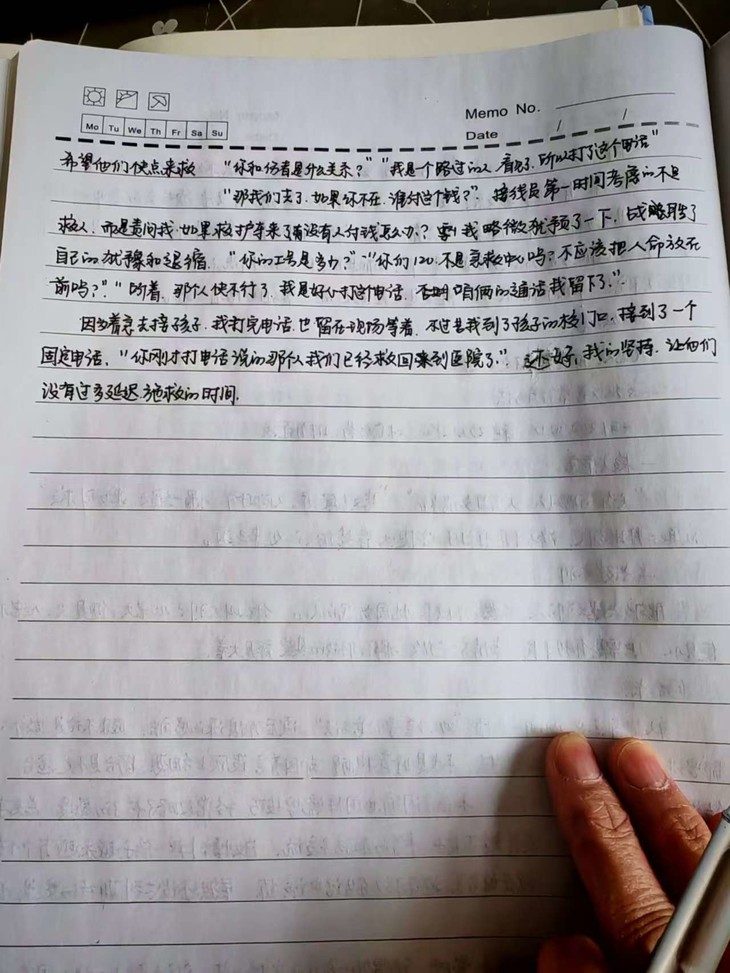 Memo No.
Mo Tu We Th Fr Sa Su
Date / /
希望他们快点来救 "你和伤者是什么关系?" "我是个路过的人,看见了,所以打了这个电话"
"那我们去了,如果你不在,谁付这个钱?", 接线员第一时间考虑的不是
救人,而是责问我,如果救护车来了有没有人付钱怎么办?我略微犹预了一下,
自己的犹豫和退缩, "你的工号是多少?" "你们120,不是急救中心吗?不应该把人命放在
前吗?" "听着,那个人快不行了,我是好心打这个电话,否则咱俩的通话我留下了."
因为着急去接孩子,我打完电话,也留在现场等着,不过当我到了孩子的校门口,接到了一个
固定电话,"你刚才打电话说的那个人我们已经救回来到医院了." 还好,我的坚持,让他们
没有过多延迟施救的时间.